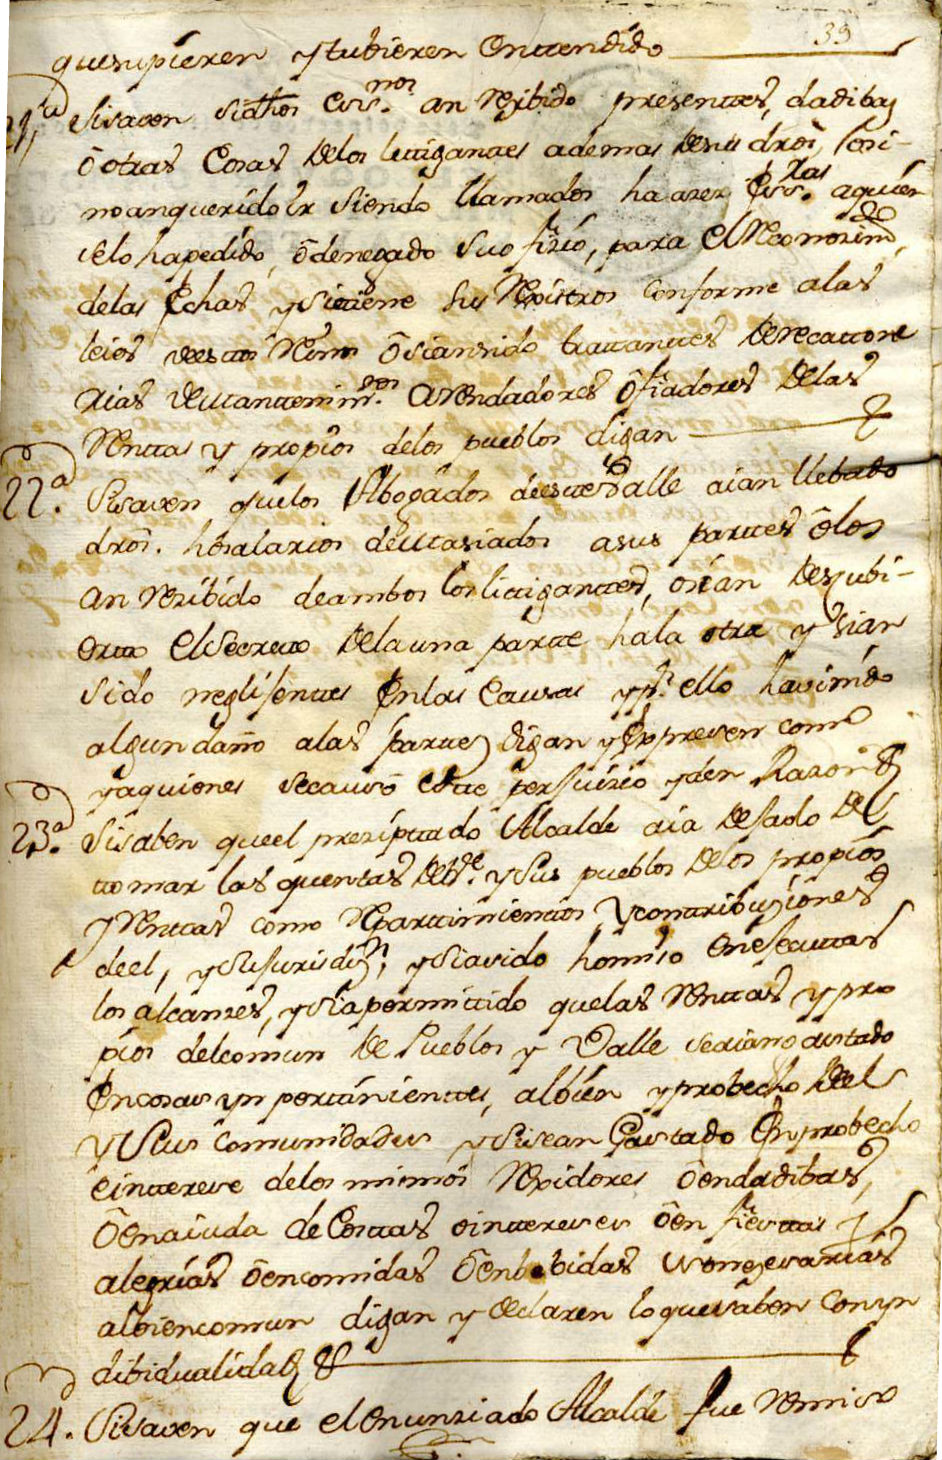 39
que supieren y tubieren Enttendido
21ª
Si saven si dhos Essnos an Rezibido presenttes, dadibas
ô otras Cosas de los littigantes ademas de sus dros, i si
no an querido ir siendo llamados ha azer Essras a quien
se lo ha pedido, ô denegado su ofizio, para el Reconozimdo
de las fhas y si tiene sus Rexistros conforme a las
leies de esttos Reinos ô si an sido trattanttes de recattone
rias de mantenimtos Arrendadores ô fiadores de las
Renttas y propios de los pueblos digan
22ª.
Si saven que los Abogados de este Valle aian llebado
dros. ho salarios demasiados a sus partes ô los
an rezibido de ambos los littigantes, o si an Descubi-
ertto el Secretto de la una parte ha la otra y si an
sido neglisentes En las Causas y pr ello ha venido
algun daño a las partes digan y Expresen como
y a quienes se causo este perjuizio y den Razon
23ª.
Si saben que el prezipttado Alcalde aia dejado de
tomar las quenttas de dho. y sus pueblos de los propios
y Renttas como Reparttimientos y contribuziones
de el, y su jurisdizn, y si a vido homiso En ejecuttar
los alcanzes, y si a permittido que las Renttas y pro
pios del comun de Pueblos y Valle se aian gastado
En cosas ynpertinientes, al bien y probecho de el
y sus Comunidades y si se an Gastado En probecho
e inttereze de los mismos Rexidores ô en dadibas,
ô en aiuda de Costtas o intereses ô en fiesttas y
alegrias ô en comidas ô en bebidas no nezesarias
al bien comun digan y declaren lo que saben con yn
dibidualidad
24.
Si saven que el Enunziado Alcalde fue Remiso